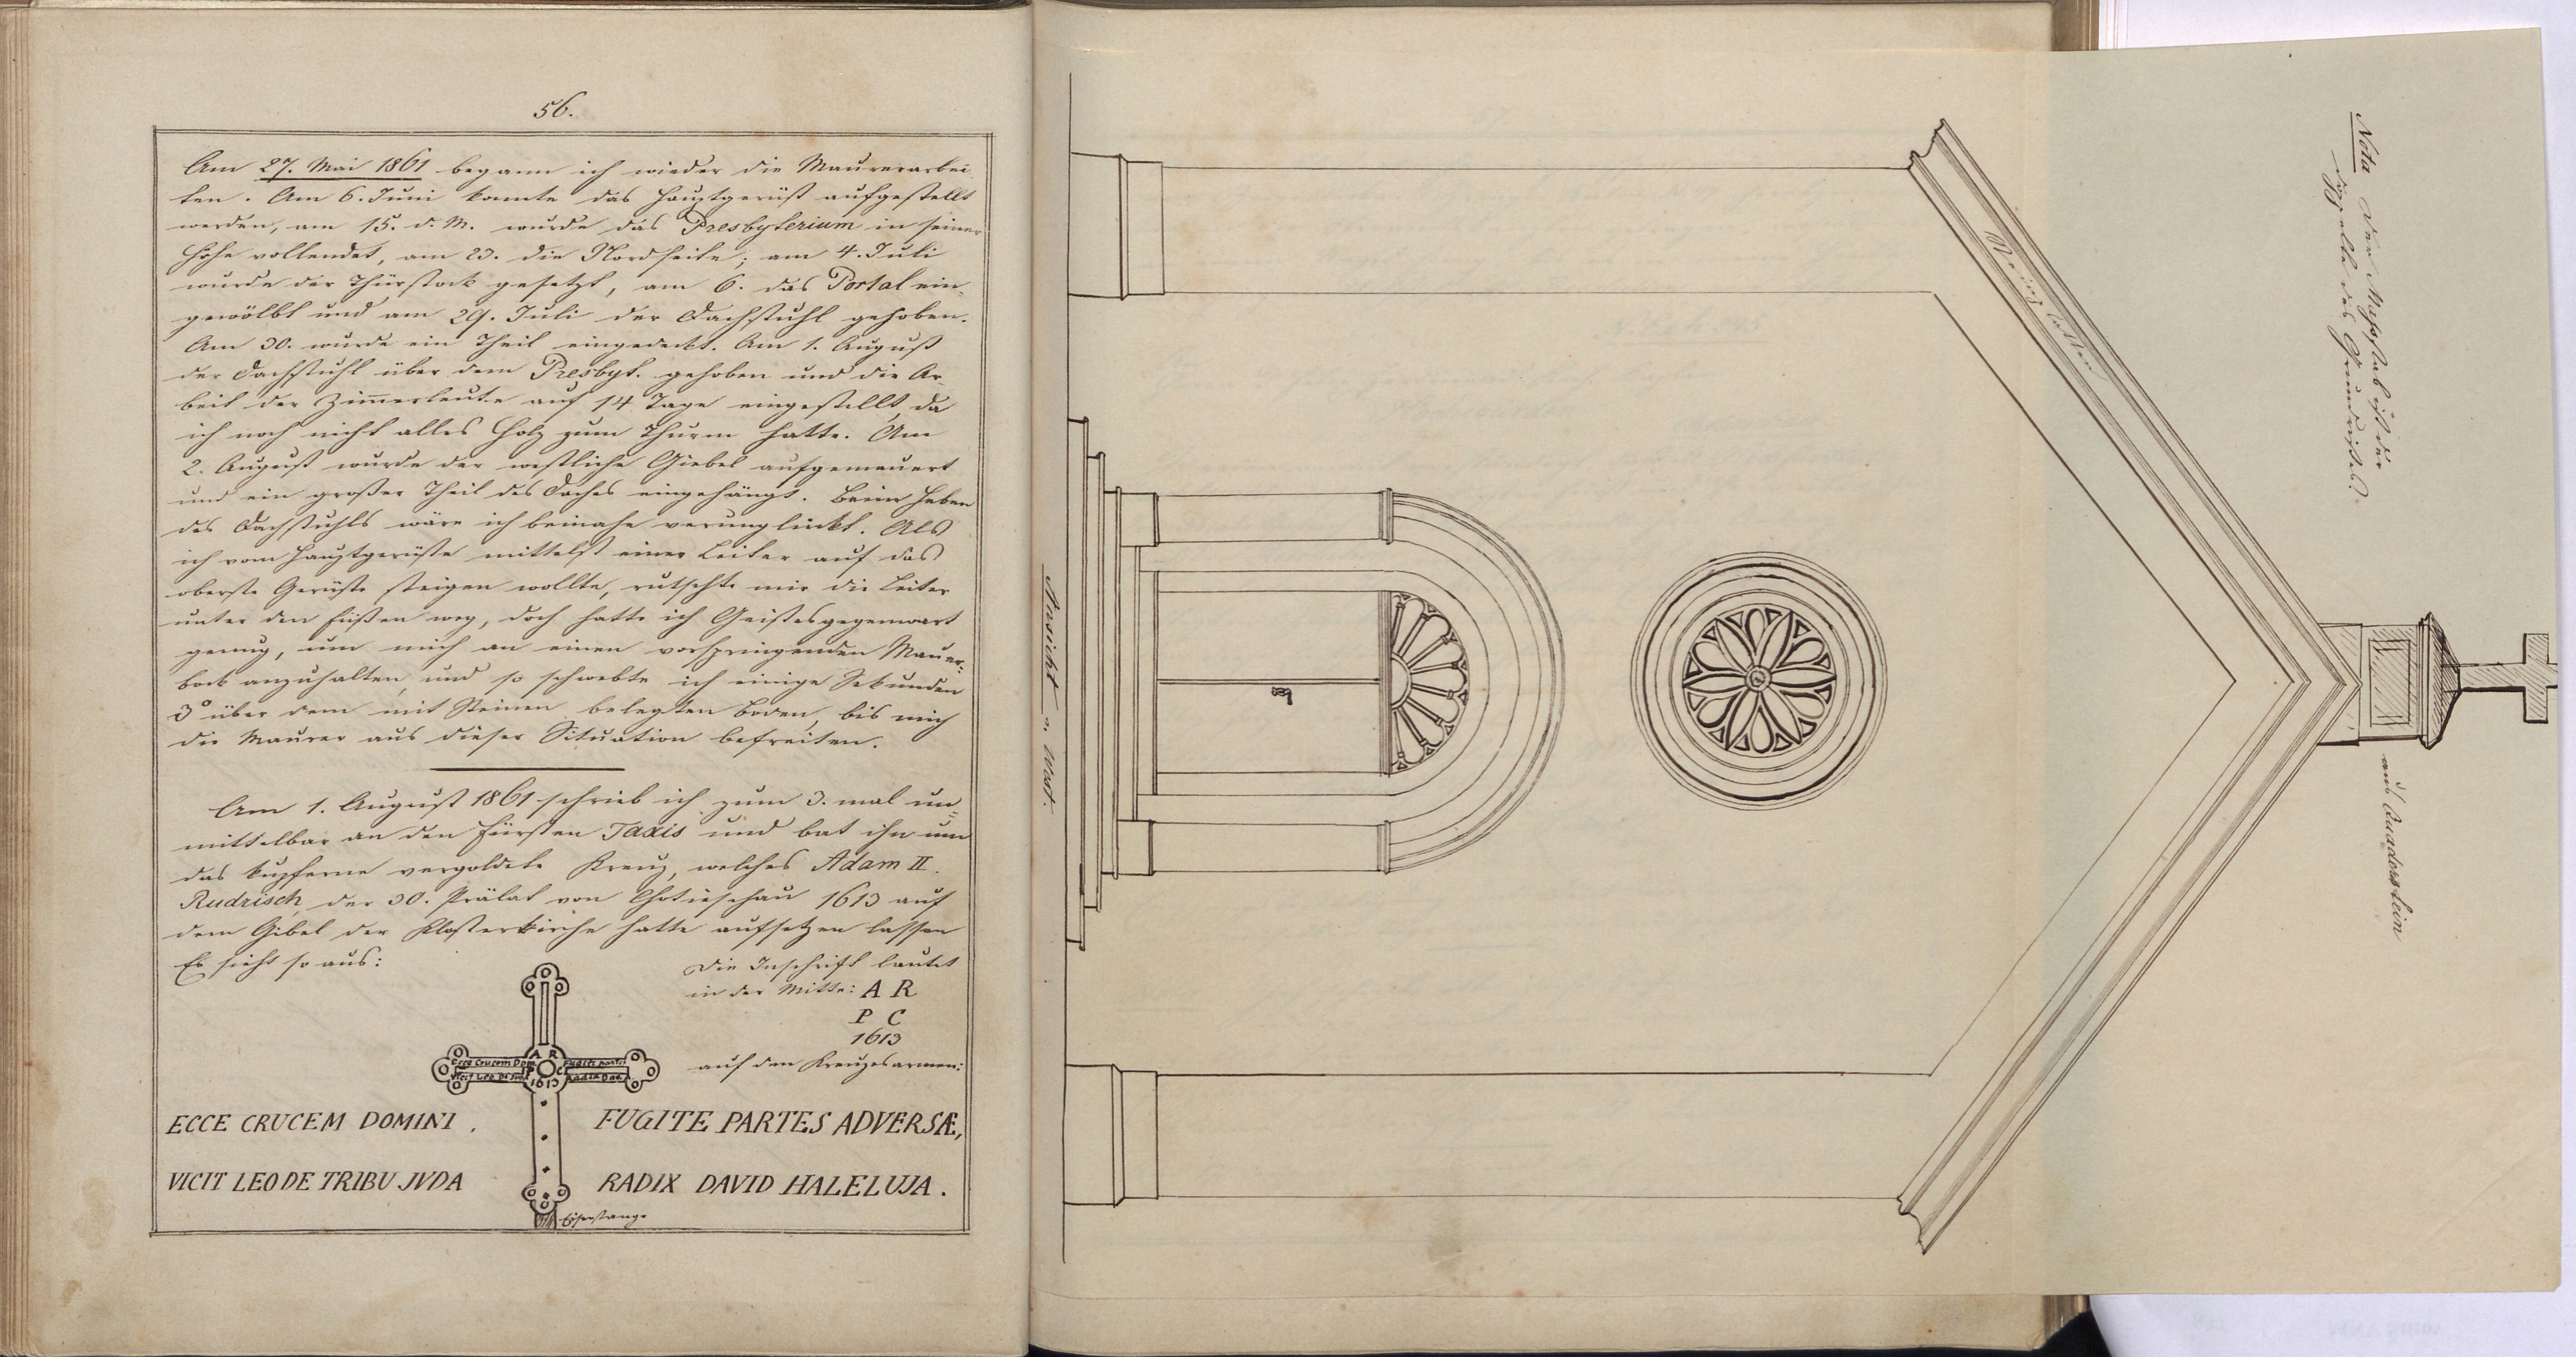 56.
Am 27. Mai 1861 begann ich wieder die Maurerarbei-
ten. Am 6. Juni konnte das Hauptgerüst aufgestellt
werden, am 15. d. M. wurde das Presbyterium in seiner
Höhe vollendet, am 23. die Nordseite; am 4. Juli
wurde der Thürstock gesetzt, am 6. das Portal ein-
gewölbt und am 29. Juli der Dachstuhl gehoben.
Am 30. wurde ein Theil eingedeckt. Am 1. August
der Dachstuhl über dem Presbyt. gehoben und die Ar-
beit der Zimerleute auf 14 Tage eingestellt, da
ich noch nicht alles Holz zum Thurm hatte. Am
2. August wurde der westliche Giebel aufgemauert
und ein großer Theil des Daches eingehängt. Beim Heben
des Dachstuhls wäre ich beinahe verunglückt. Als
ich vom Hauptgerüste mittelst einer Leiter auf das
oberste Gerüste steigen wollte, rutschte mir die Leiter
unter den Füßen weg, doch hatte ich Geistesgegenwart
genug, um mich an einen vorspringenden Mauer-
bock anzuhalten, und so schwebte ich einige Sekunden
3° über dem mit Steinen belegten Boden, bis mich
die Maurer aus dieser Situation befreiten.
Am 1. August 1861 schrieb ich zum 3. mal un-
mittelbar an den Fürsten Taxis und bat ihn um
das kupferne vergoldete Kreuz, welches Adam II.
Rudrisch, der 30. Prälat von Chotieschau 1613 auf
dem Gibel der Klosterkirche hatte aufsetzen lassen
Es sieht so aus:
Die Inschrift lautet
in der Mitte: A R
P C
1613
auf den Kreuzesarmen:
A R
Ecce Crucem Dom Fugite partes
P C
Vicit Leo De Radix Dav
1613
ECCE CRUCEM DOMINI. FUGITE PARTES ADVERSÆ,
VICIT LEO DE TRIBU JVDA RADIX DAVID HALELUJA.
Eisenstange
Ansicht v. West.
Nota Der Maßstab ist der
doppelte des Grundrißes.
aus Quaderstein